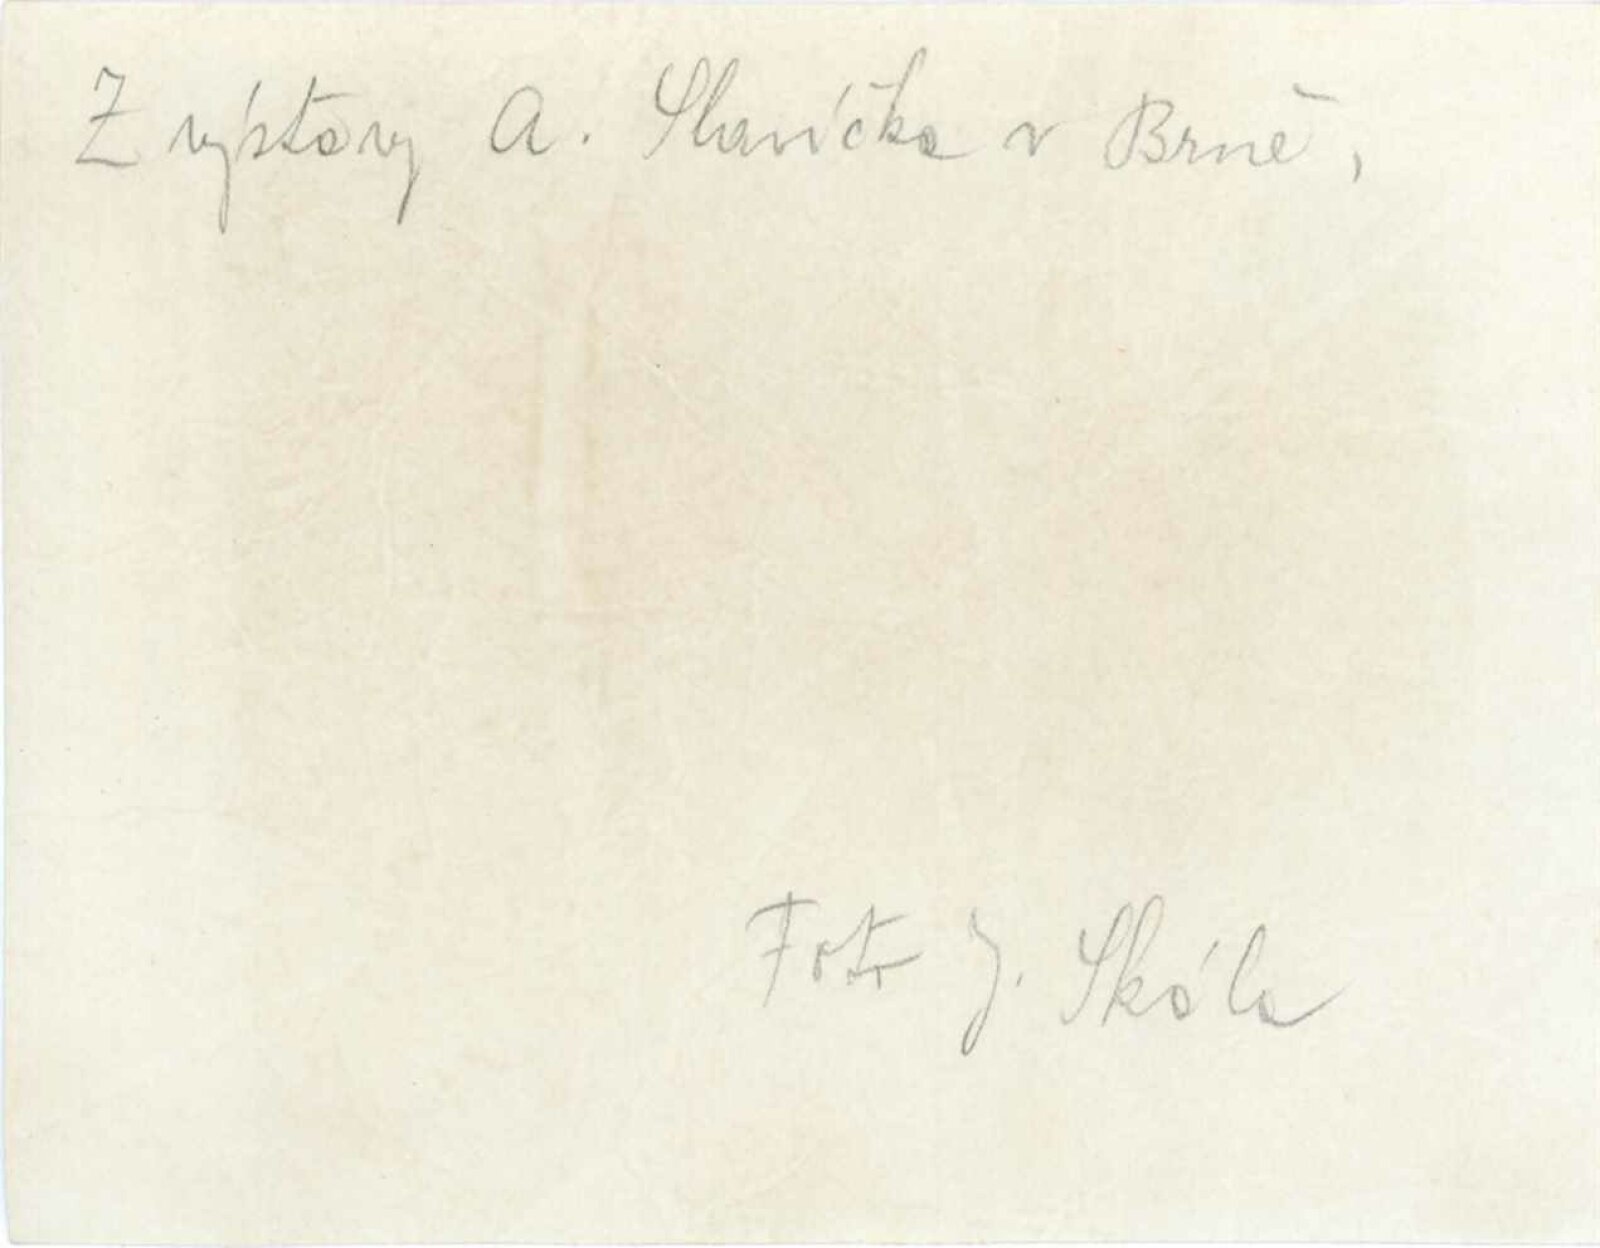 Z výstavy A. Slavíčka v Brně,
Foto J. Skála